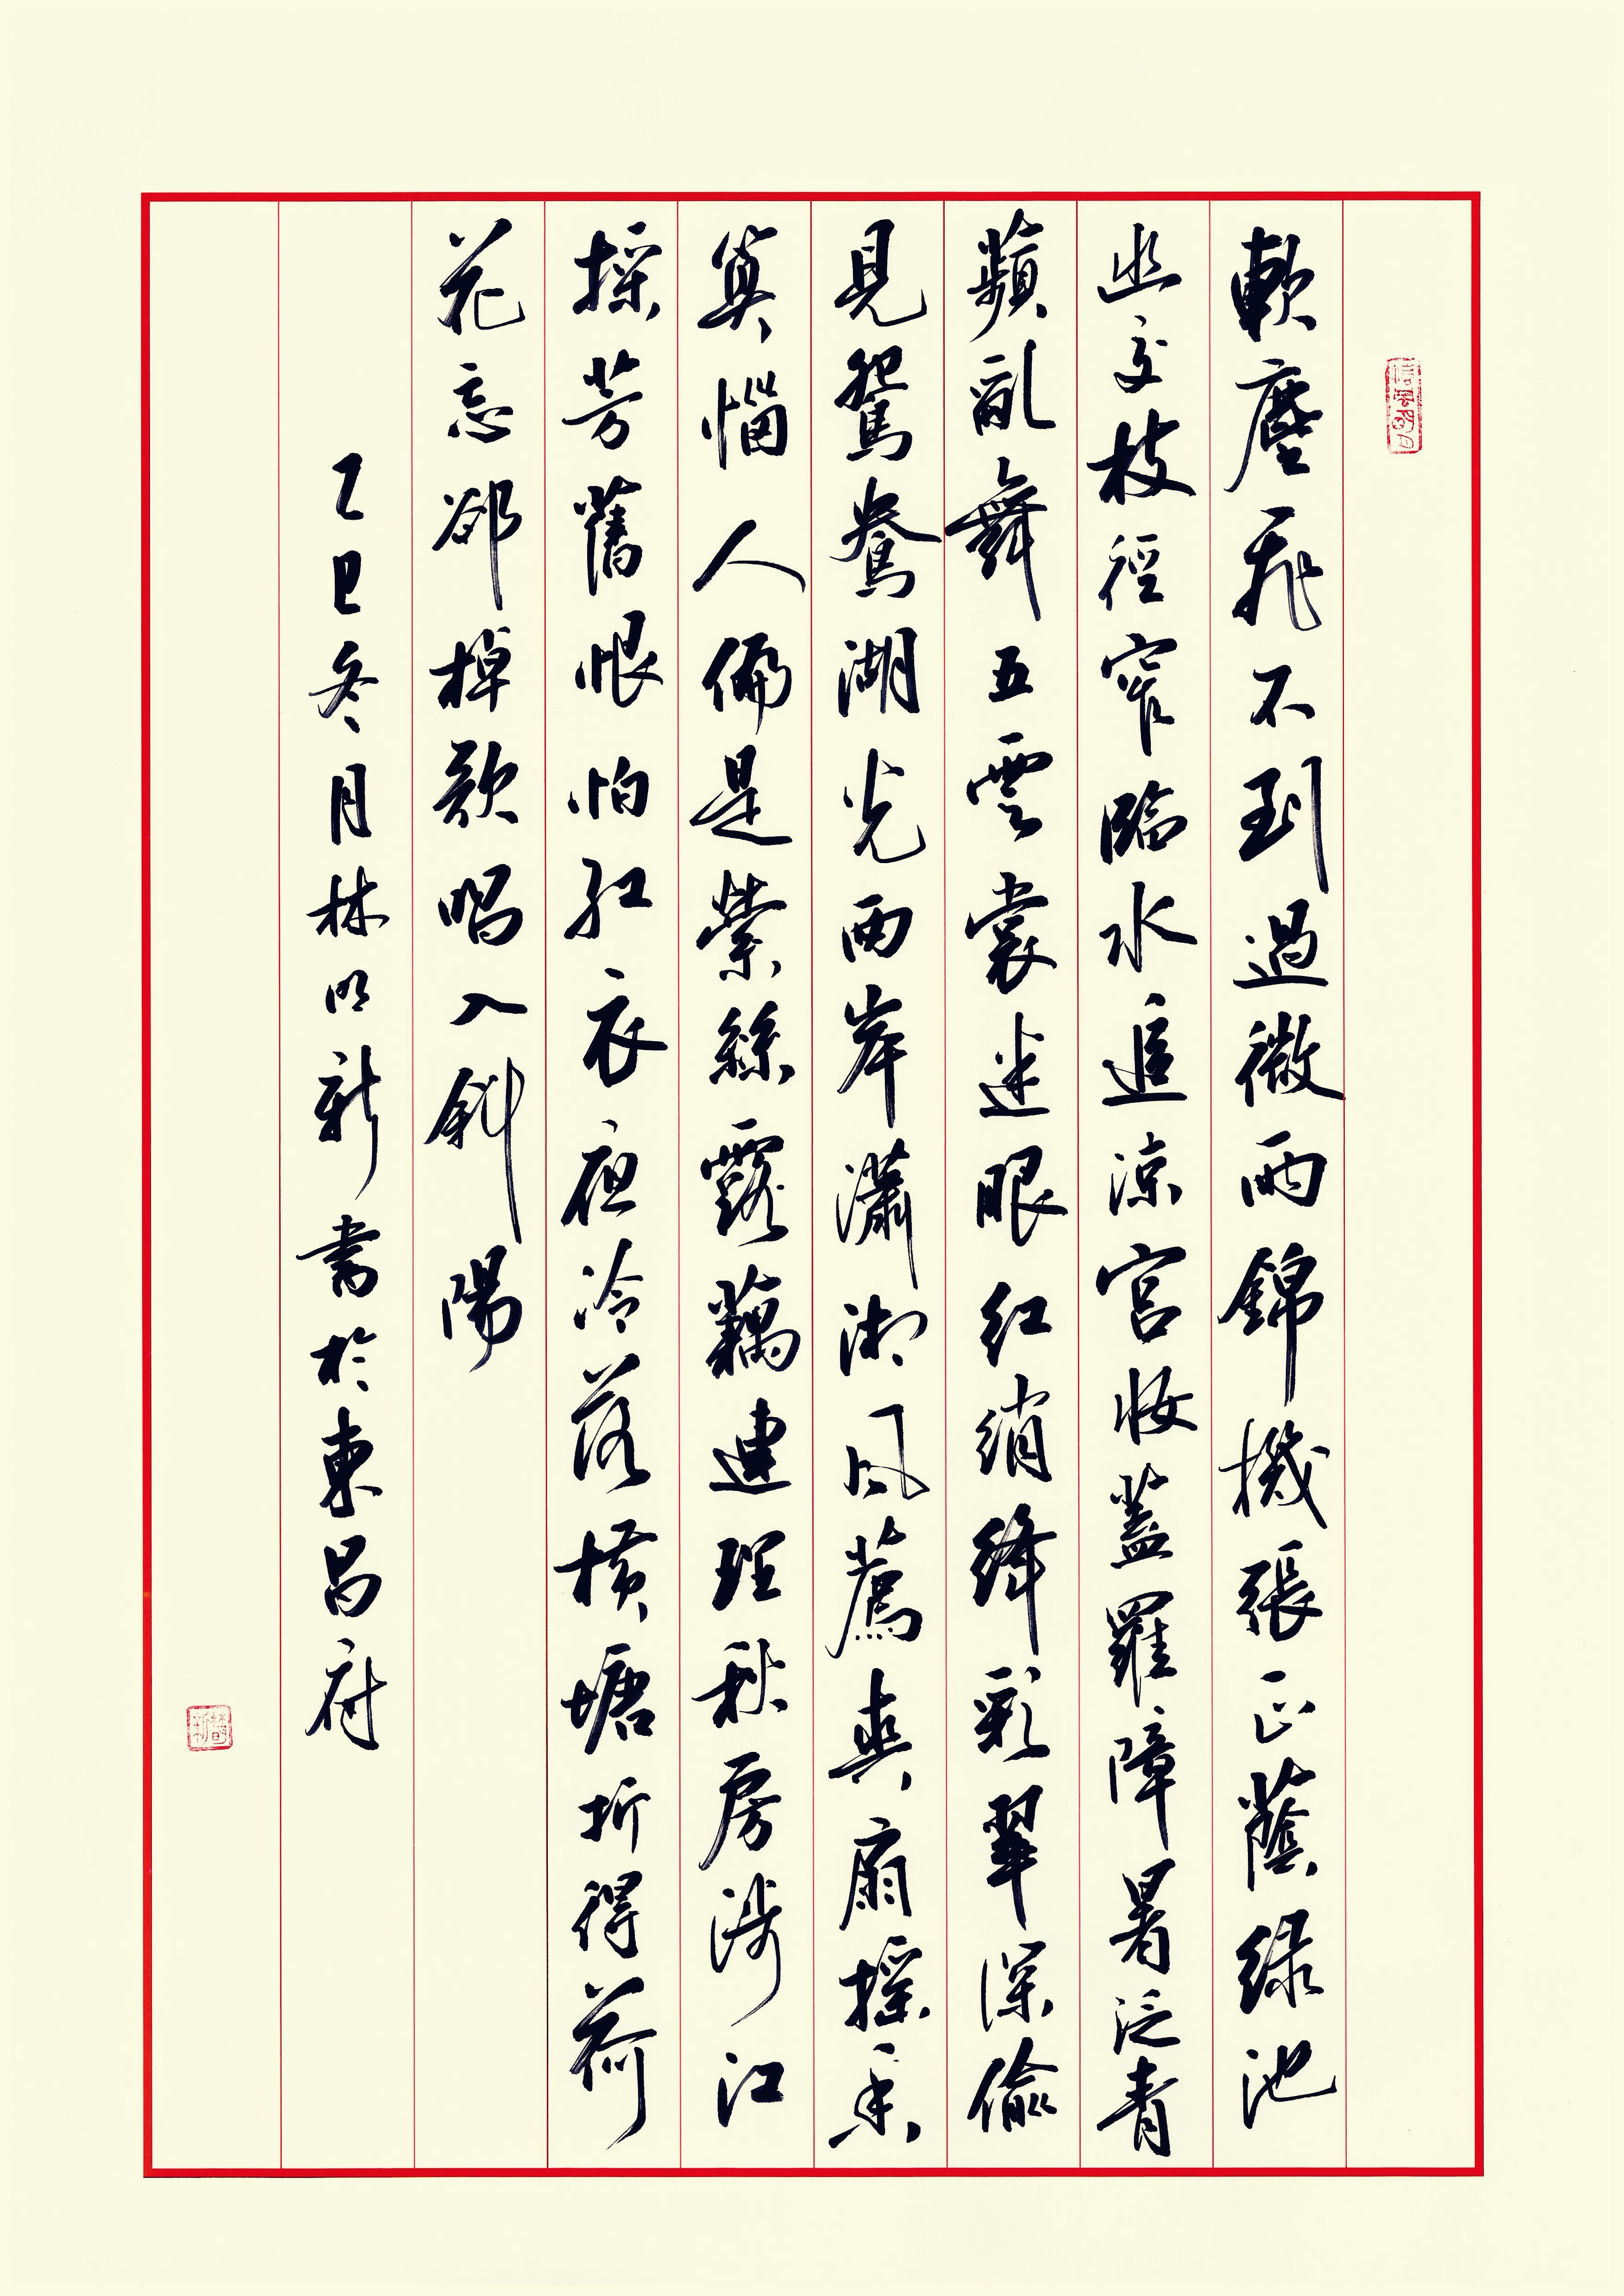 軟塵飛不到過微雨錦機張正蔭綠池
幽交枝徑窄臨水追涼宮妝蓋羅障暑泛青
蘋亂舞五雲裳迷眼紅綃絳彩翠深偷
見鴛鴦湖光兩岸瀟湘風薦爽扇搖香
算惱人偏是縈絲露藕連理秋房涉江
採芳舊恨怕紅衣夜冷落橫塘折得荷
花忘卻棹歌唱入斜陽
乙巳冬月林明新書於東昌府